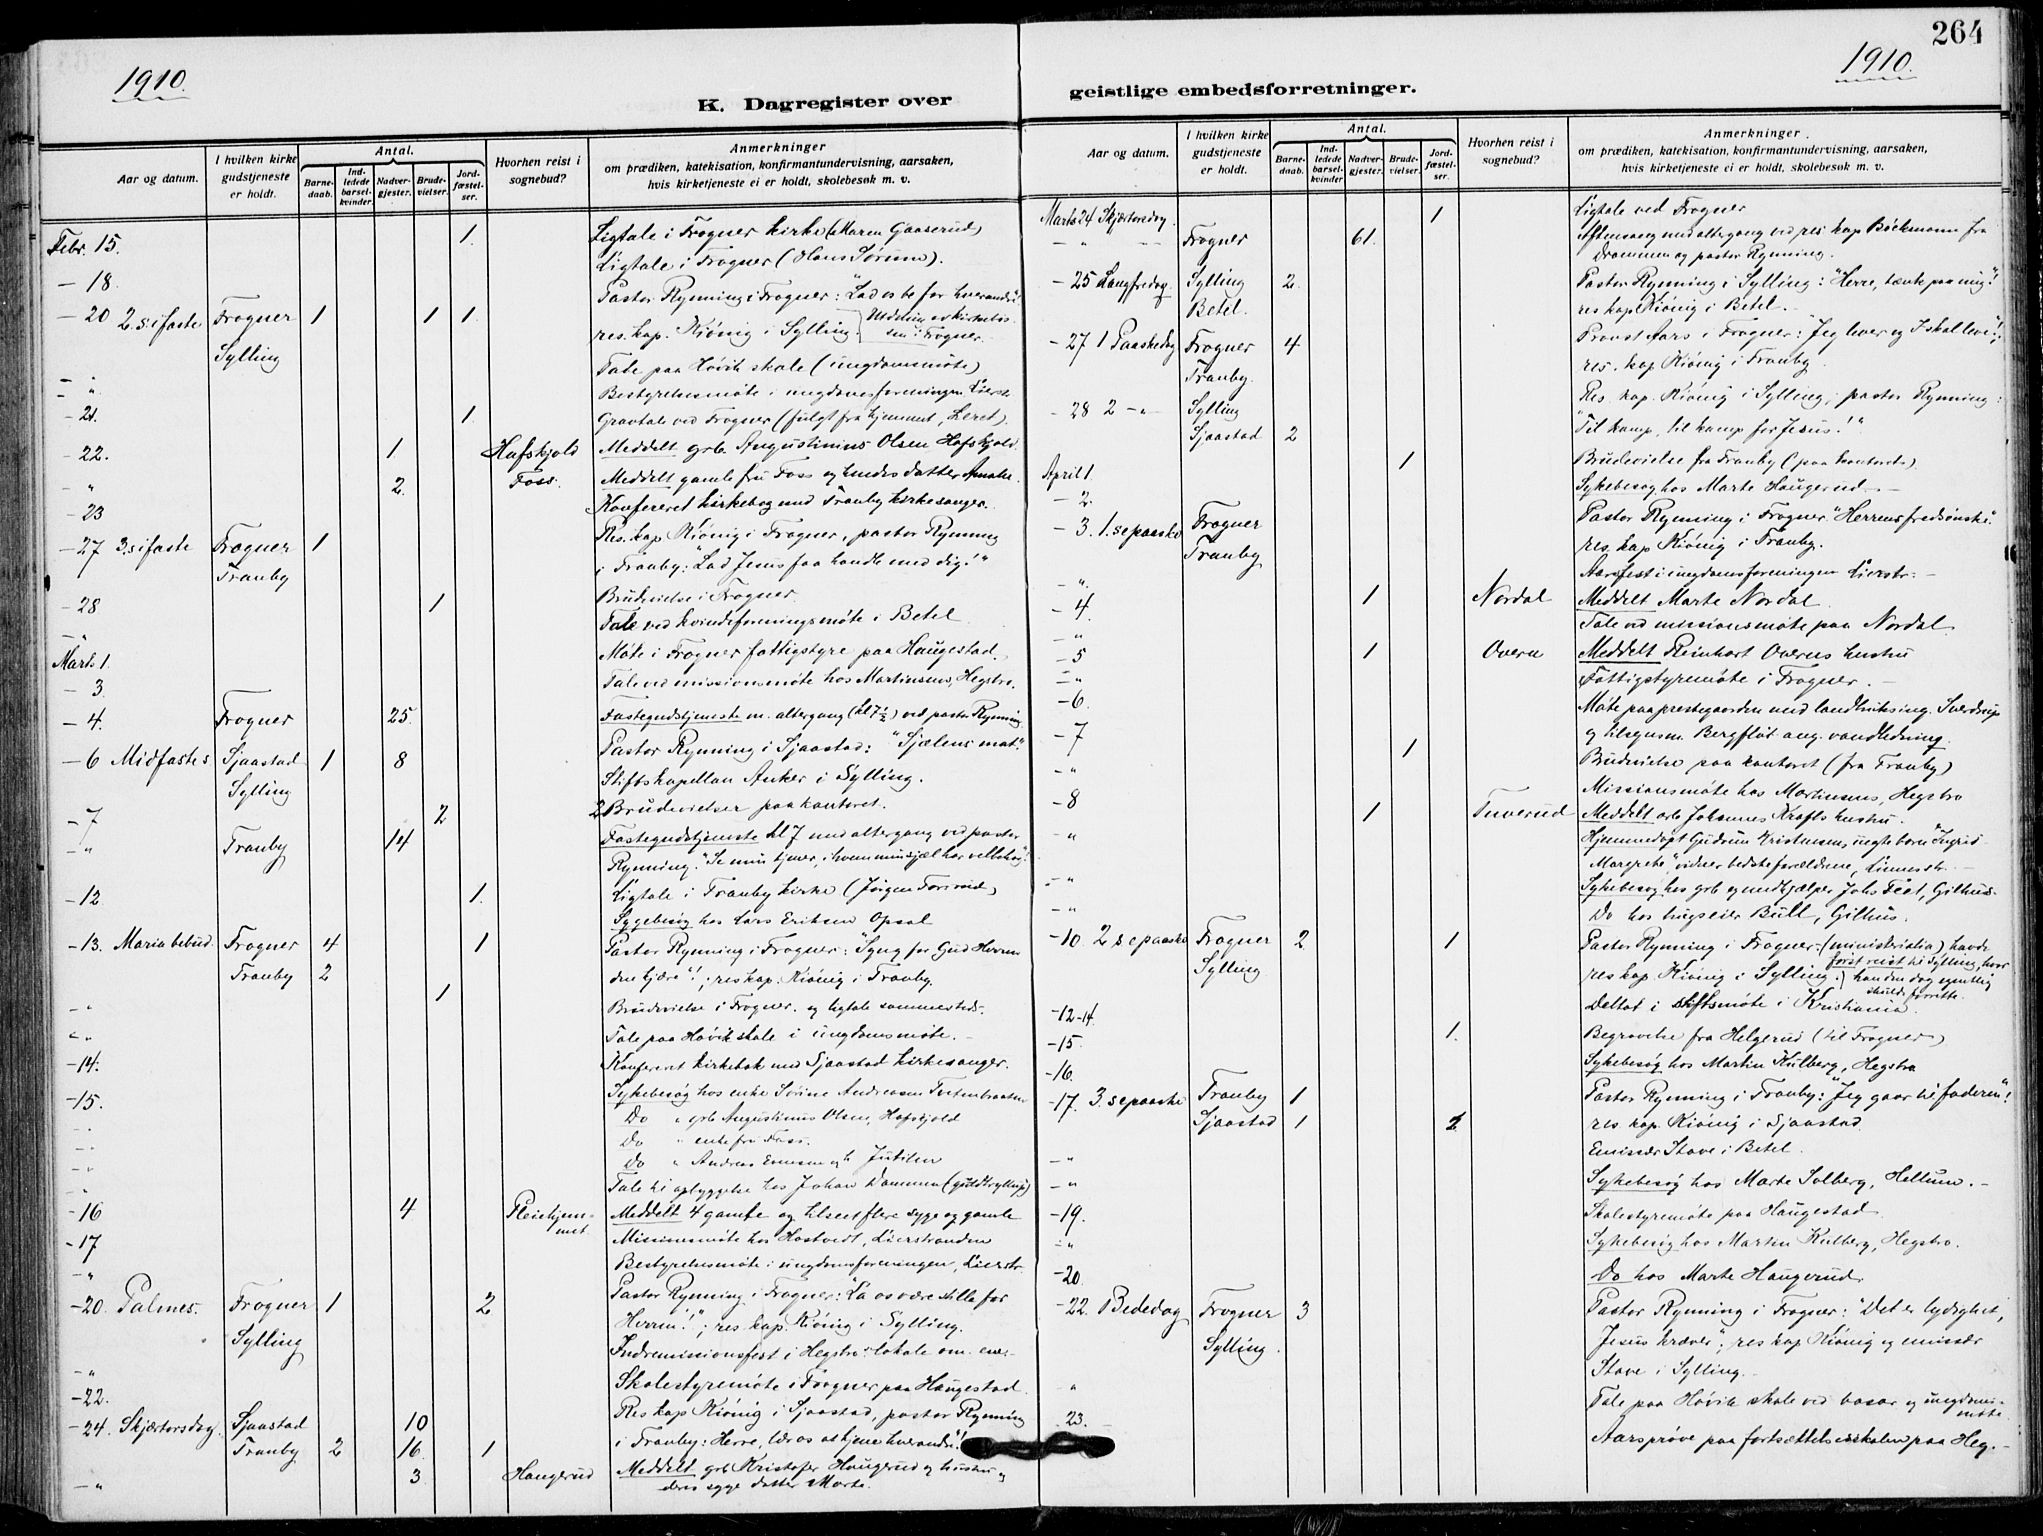 264
1910.
1910.
K. Dagregister over
geistlige embedsforretninger.
Aar og datum.
I hvilken kirke gudstjeneste er holdt.
Antal.
Barne-daab.
Ind-ledede barsel-kvinder
Nadver-gjester.
Brude-vielser.
Jord-fæstel-ser.
Hvorhen reist i sognebud?
Anmerkninger
om prædiken, katekisation, konfirmantundervisning, aarsaken,
hvis kirketjeneste ei er holdt, skolebesøk m. v.
Febr. 15. 1. Ligtale i Frogner kirke (Maren Gaaserud)
— 18. Ligtale i Frogner (Hans Sørum).
— 20 2. s. i faste Frogner 1 1 1. Pastor Rynning i Frogner: "Lad os be for hverandre"!
Sylling res. kap. Kiönig i Sylling.
— " Tale paa Høvik skole (ungdomsmøte)
— " Bestyrelsesmøte i ungdomsforeningen Lierstr.
— 21. 1. Gravtale ved Frogner (fulgt fra hjemmet, Leret)
— 22. 1 Hafskjold Meddelt grb. Augustinius Olsen Hafskjold.
— " 2. Foss. Meddelt gamle fru Foss og hendes datter Amalie.
— 23 Konfereret kirkebog med Tranby kirkesanger.
— 27 3. s i faste Frogner 1 Res. kap. Kiönig i Frogner, pastor Rynning
Tranby i Tranby: "Lad Jesus faa handle med dig!"
— 28 1 Brudevielse i Frogner.
— " Tale ved kvindeforeningsmøte i Betel.
Marts 1. Møte i Frogner fattigstyre paa Haugestad.
— 3. Tale ved missionsmøte hos Martinsens, Hegsbro.
— 4. Frogner 25. Fastegudstjeneste m. altergang (kl 7½) ved pastor Rynning
— 6 Midfaste s. Sjaastad 1 8 Pastor Rynning i Sjaastad: "Sjælens mat".
Sylling Stiftskapellan Anker i Sylling.
— 7 2 2 Brudevielser paa kontoret.
— " Tranby 14 Fastegudstjeneste kl 7 med altergang ved pastor
Rynning. "Se min tjener, i hvem min sjæl har velbehag"!
— 12 1. Ligtale i Tranby kirke (Jørgen Forsrud)
Sygebesøg hos Lars Eriksen Opsal
— 13. Maria bebud. Frogner 4 1 Pastor Rynning i Frogner: "Syng for Gud Herren
Tranby 2 den kjære"!; res. kap. Kiönig i Tranby.
— " 1 Brudevielse i Frogner. og ligtale sammesteds.
— " Tale paa Høvik skole i ungdomsmøte.
— 14. Konfereret kirkebok med Sjaastad kirkesanger.
— 15. Sykebesøg hos enke Sørine Andreasen
Do " grb. Augustinus Olsen, Hafskjold
Do " enkefru Foss.
Do " Andreas
— " Tale til opbyggelse hos Johan Dammen (guldbryllup)
— 16 4 Pleiehjem-met. Meddelt 4 gamle og tilseet flere syge og gamle
— 17 Missionsmøte hos Hostvedt, Lierstranden
— " Bestyrelsesmøte i ungdomsforeningen, Lierstr.
— 20. Palmes. Frogner 1 2 Pastor Rynning i Frogner: "La os være stille for
Sylling Herren!"; res. kap. Kiönig i Sylling.
— " Indremissionsfest i Hegsbro lokale
— 22. Skolestyremøte i Frogner paa Haugestad.
— 24. Skjærtorsdag. Sjaastad 10 Res kap Kiönig i Sjaastad, pastor Rynning
Tranby 2 16. 1 i Tranby: Herre, lær os at tjene hverandre!
— " 3 Haugerud Meddelt grb. Kristofer Haugerud og hustru og
deres syge datter Marte.
Aar og datum.
I hvilken kirke gudstjeneste er holdt.
Antal.
Barne-daab.
Ind-ledede barsel-kvinder
Nadver-gjester.
Brude-vielser.
Jord-fæstel-ser.
Hvorhen reist i sognebud?
Anmerkninger.
om prædiken, katekisation, konfirmantundervisning, aarsaken,
hvis kirketjeneste ei er holdt, skolebesøk m. v.
Marts 24 Skjærtorsdag. 1 Ligtale ved Frogner
— " Frogner 61. Aftensang med altergang ved res. kap Böckmann fra
Drammen og pastor Rynning.
— 25 Langfredag. Sylling 2. Pastor Rynning i Sylling: "Herre, tænk paa mig"!
Betel. res kap Kiönig i Betel.
— 27 1 Paaskedag Frogner 4 Provst Aars i Frogner: "Jeg lever og I skal leve"!;
Tranby. res. kap Kiönig i Tranby.
— 28 2 — " Sylling Res. kap. Kiönig i Sylling; pastor Rynning:
Sjaastad 2 "Til kamp, til kamp for Jesus!"
April 1. 1 Brudevielse fra Tranby (paa kontoret).
— 2. Sykebesøg hos Marte Haugerud.
— 3. 1. s e paaske Frogner Pastor Rynning i Frogner. "Herrens fredsønske".
Tranby res. kap Kiönig i Tranby.
— " Aarsfest i ungdomsforeningen Lierstr.
— 4. 1 Nordal Meddelt Marte Nordal.
— " Tale ved missionsmøte paa Nordal.
— 5 1 Overn Meddelt Reinhart Overns hustru
— " Fattigstyremøte i Frogner.
— 6. Møte paa prestegaarden med landbruksing. Sverdrup
og tilsynsm. Bergfløt ang. vandledning.
— 7 1 Brudevielse paa kontoret (fra Tranby)
— " Missionsmøte hos Martinsens, Hegsbro
— 8 1 Tuverud Meddelt grb. Johannes Krafts hustru.
— " Hjemmedøpt Gudrun Kristensens uegte barn "Ingrid
Margrete", vidner bedsteforældrene, Linnesstr.
— " Sykebesøg hos grb og medhjælper Johs Teet, Gilhus.
— " Do hos brugseier Bull, Gilhus.
— 10. 2 s e paaske Frogner 2. 1 Pastor Rynning i Frogner (ministerialia) havde
først reist til Sylling, hvor
Sylling res kap. Kiönig i Sylling. han den dag egentlig
skulde forrette.
— 12-14. Deltat i stiftsmøte i Kristiania.
— 15. 1. Begravelse fra Helgerud (til Frogner)
— 16. Sykebesøg hos Martin Kulberg, Hegsbro
— 17. 3. s e paaske Tranby 1 Pastor Rynning i Tranby: "Jeg gaar til faderen"!
Sjaastad 1 2. res. kap. Kiönig i Sjaastad.
Emissær Stave i Betel.
— " Sykebesøg hos Marte Solberg, Hellum.
— 19. Skolestyremøte paa Haugestad.
— " Sykebesøg hos Martin Kulberg, Hegsbro.
— 20. Do hos Marte Haugerud.
— 22. Bededag Frogner 3 Pastor Rynning i Frogner: "Det er lydighet,
Sylling. Jesus kræver"; res kap Kiönig og emissær
Stave i Sylling.
— " Tale paa Høvik skole ved basar og ungdoms-
møte.
23. Aarsprøve paa fortsættelsesskolen paa Heg.